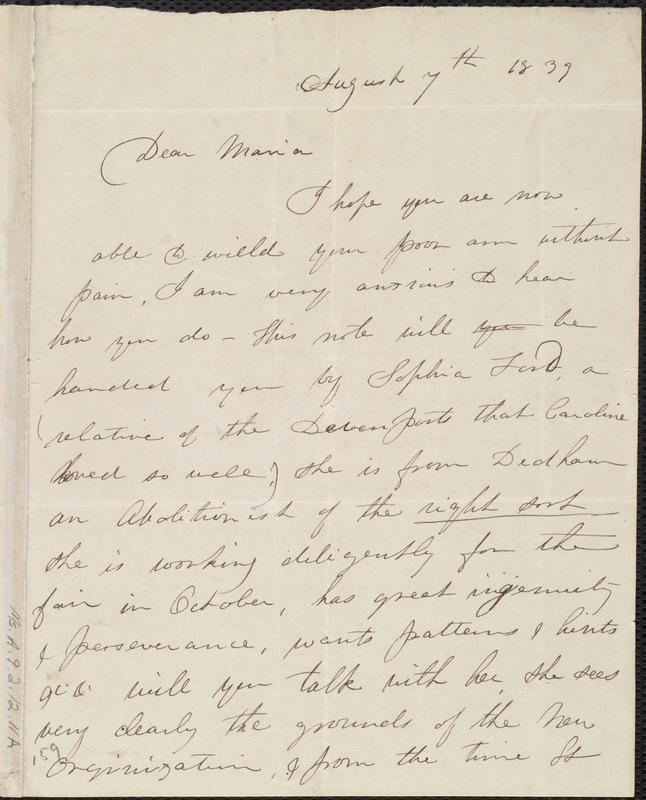 August 7th 1839
Dear Maria
I hope you are now
able to willd your poor arm without
pain, I am very anxious to hear
how you do – this note will you be
handed you by Sophia Ford, a
(relative of the Devenports that Caroline
loved so well,) she is from Dedham
an Abolitionist of the right sort
she is working diligently for the
fair in October, has great ingenuity
& perseverance, wants patterns & hints
&c &c will you talk with her, she sees
very clearly the grounds of the New
Organization, & from the time St
Ms.A.9.2.12.11A
159